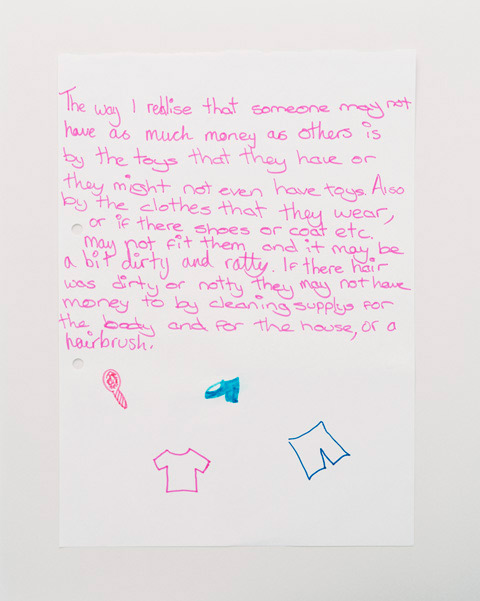 The way I realise that someone may not
have as much money as others is
by the toys that they have or
they might not even have toys. Also
by the clothes that they wear,
or if there shoes or coat etc.
may not fit them, and it may be
a bit dirty and ratty. If there hair
was dirty or notty they may not have
money to by cleaning supplys for
the body and for the house, or a
hairbrush.